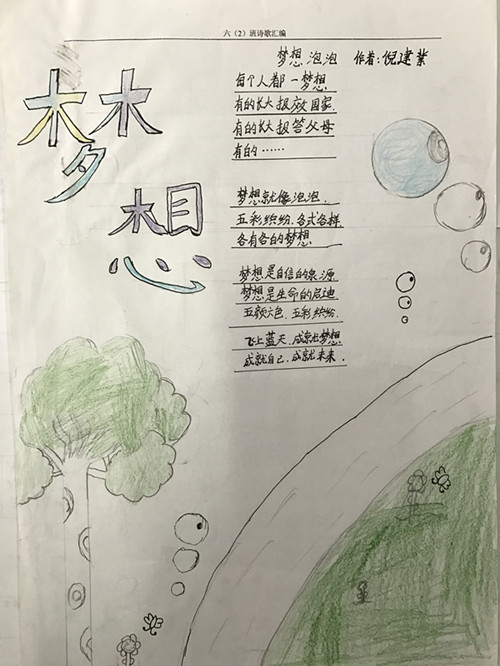 六（2）班诗歌汇编
梦想
梦想泡泡 作者:倪建業
每个人都一梦想
有的长大报效国家
有的长大报答父母
有的……
梦想就像泡泡.
五彩缤纷.各式各样.
各有各的梦想
梦想是自信的泉源
梦想是生命的启迪
五颜六色.五彩缤纷.
飞上蓝天.成就梦想
成就自己.成就未来.